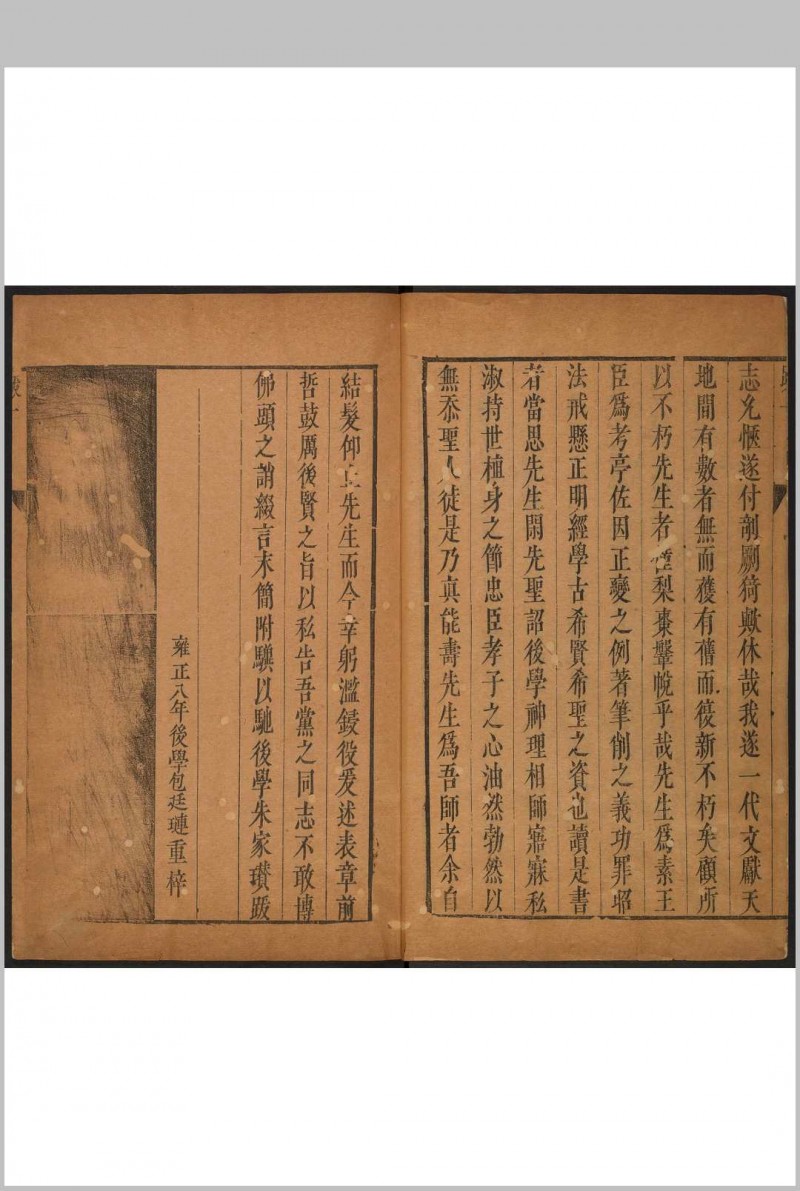 志允愜遂付剞劂猗歟休哉我遂一代文獻天
地間有數者無而獲有舊而後新不朽矣顧所
以不朽先生者梨棗鞶帨乎哉先生爲素王
臣爲考亭佐因正變之例著筆削之義功罪昭
法戒懸正明經學古希賢希聖之資也讀是書
者當思先生閑先聖詔後學神理相師寤寐私
淑持世植身之節忠臣孝子之心油然勃然以
無忝聖人徒是乃真能壽先生爲吾師者余自
結髮仰止先生而今幸躬濫鋟役爰述表章前
哲鼓厲後賢之旨以私告吾黨之同志不敢博
佛頭之誚綴言末簡附驥以馳後學朱家瓚跋
雍正八年後學包廷璉重梓
跋一